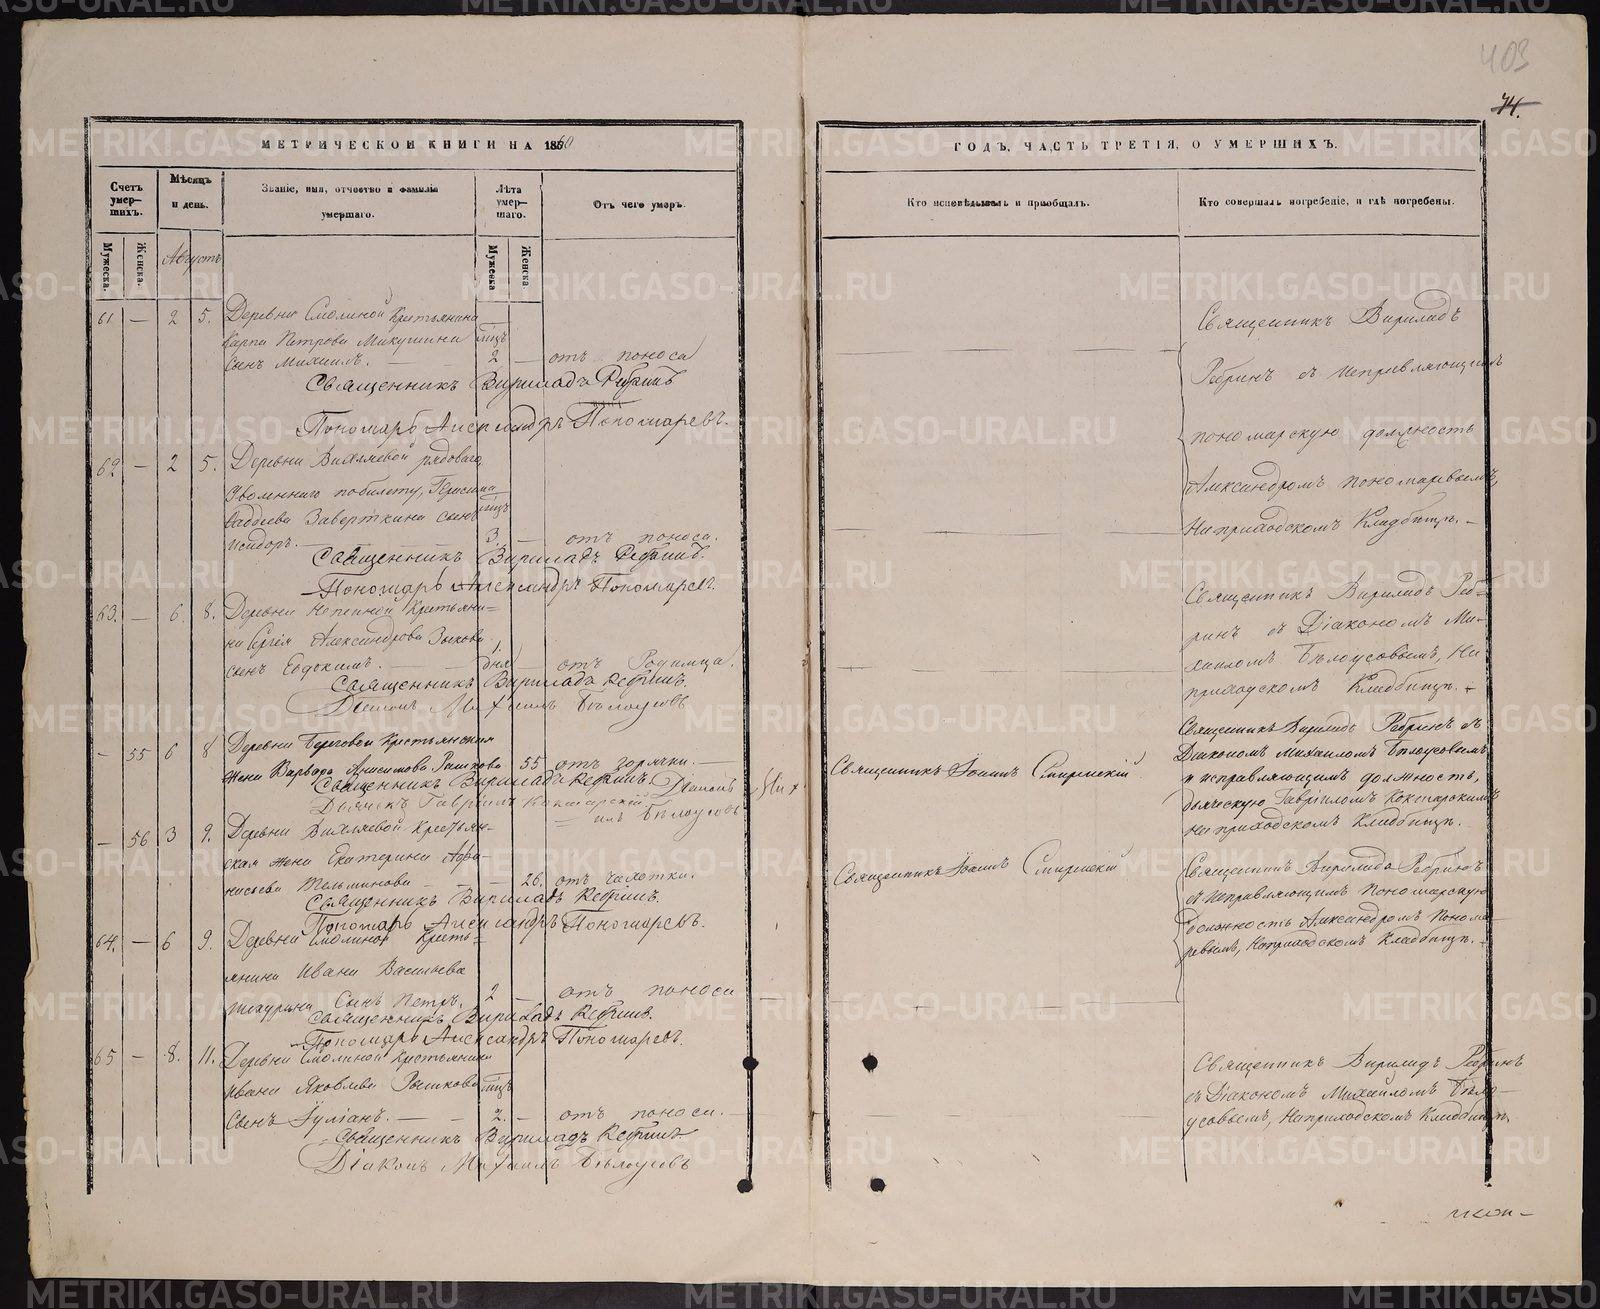 403
74.
МЕТРИЧЕСКОЙ КНИГИ НА 1860
Счетъ умер-шихъ.
Мѣсяцъ и день.
Званіе, имя, отчество и фамилія умершаго.
Лѣта умер-шаго.
Отъ чего умеръ.
Мужеска.
Женска.
Августъ
Мужеска
Женска.
61 — 2 5. Деревни Смолиной Крестьянина
Карпа Петрова Микушина мѣц
сынъ Михаилъ. — 2 — отъ поноса
Священникъ Вириладъ Ребринъ
Пономарь Александръ Пономаревъ.
62 — 2 5. Деревни Вихляевой рядоваго,
уволеннаго по билету, Герасима
Заверткина сынъ мѣц
Исидоръ. — 3. — отъ поноса.
Священникъ Вириладъ Ребринъ.
Пономарь Александръ Пономаревъ.
63. — 6 8. Деревни Крестьяни=
на Сергѣя Александрова Зыкова 1.
сынъ Евдокимъ. — дня — отъ Родимца.
Священникъ Вириладъ Ребринъ.
Діаконъ Михаилъ Бѣлоусовъ
— 55 6 8 Деревни Береговой Крестьянская
жена Варвара Анисимова Рашкова 55 отъ горячки. —
Священникъ Вириладъ Ребринъ. Діаконъ Мих
Дьячекъ Гавріилъ Кокшарскій = илъ Бѣлоусовъ
— 56 3 9. Деревни Вихляевой Крестьян-
ская жена Екатерина Афа-
насьева Тельминова — 26. отъ чахотки.
Священникъ Вириладъ Ребринъ.
Пономарь Александръ Пономаревъ.
64. — 6 9. Деревни Смолиной Кресть=
янина Ивана Васильева
Сынъ Петръ. 2 — отъ поноса
Священникъ Вириладъ Ребринъ.
Пономарь Александръ Пономаревъ.
65 — 8. 11. Деревни Смолиной Крестьянина
Ивана Яковлева Рашкова мѣц
Сынъ Іуліанъ. — 2. — отъ поноса. —
Священникъ Вириладъ Ребринъ
Діаконъ Михаилъ Бѣлоусовъ
ГОДЪ, ЧАСТЬ ТРЕТІЯ, О УМЕРШИХЪ.
Кто исповѣдывалъ и пріобщалъ.
Кто совершалъ погребеніе, и гдѣ погребены.
Священникъ Вириладъ
Ребринъ съ исправляющимъ
пономарскую должность
Александромъ Пономаревымъ,
На приходскомъ Кладбищѣ. —
Священникъ Вириладъ Реб=
ринъ съ Діакономъ Ми-
хаиломъ Бѣлоусовымъ, На
приходскомъ Кладбищѣ.
Священникъ Іоаннъ Смиренскій
Священникъ Вириладъ Ребринъ съ
Діакономъ Михаиломъ Бѣлоусовымъ
и исправляющимъ должность,
дьяческую Гавріиломъ Кокшарскимъ
На приходскомъ Кладбищѣ.
Священникъ Іоаннъ Смиренскій
Священникъ Вирилада Ребринъ
съ исправляющимъ Пономарскую
должность Александромъ Понома-
ревымъ, На приходскомъ Кладбищѣ. —
Священникъ Вириладъ Ребринъ
съ Діакономъ Михаиломъ Бѣло-
усовымъ, На приходскомъ Кладбищѣ.
METRIKI.GASO-URAL.RU